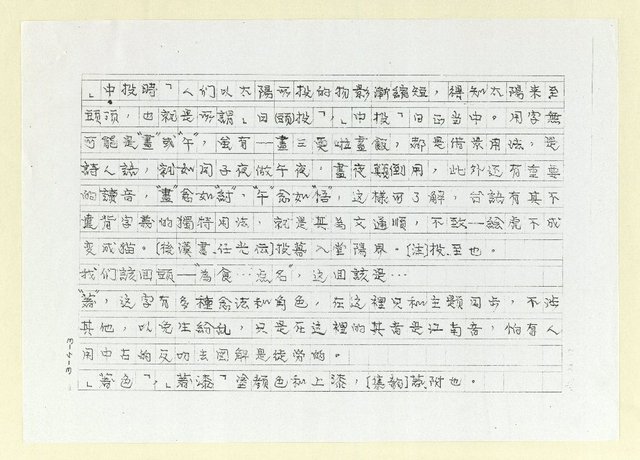 」中投時「人们以太陽所投的物影漸縮短，得知太陽来至
頭頂，也就是所謂」日頭投「，」中投「日正當中。用字無
可能是"晝"或"午"，雖有一晝三更啦晝飯，都是借来用法，是
詩人話，就如同子夜做午夜，晝夜顛倒用，此外还有重要
的讀音，"晝"唸如"討"，"午"唸如"悟"，这樣可了解，台語有其不
違背字義的獨特用法，就是其為文通順，不致一絵虎不成
变成猫。〔後漢書.任光伝〕投暮入堂陽界。〔注〕投.至也。
我们該回頭一"為食…点名"，这回該是…
"蓦"，这字有多種唸法和角色，在这裡只和主題同步，不涉
其他，以免生紛乱，只是在这裡的其音是江南音，怕有人
用中古的反切去図解是徒劳的。
」蓦色「，」蓦漆「塗顔色和上漆，〔集韵〕蓦附也。
3-4-3